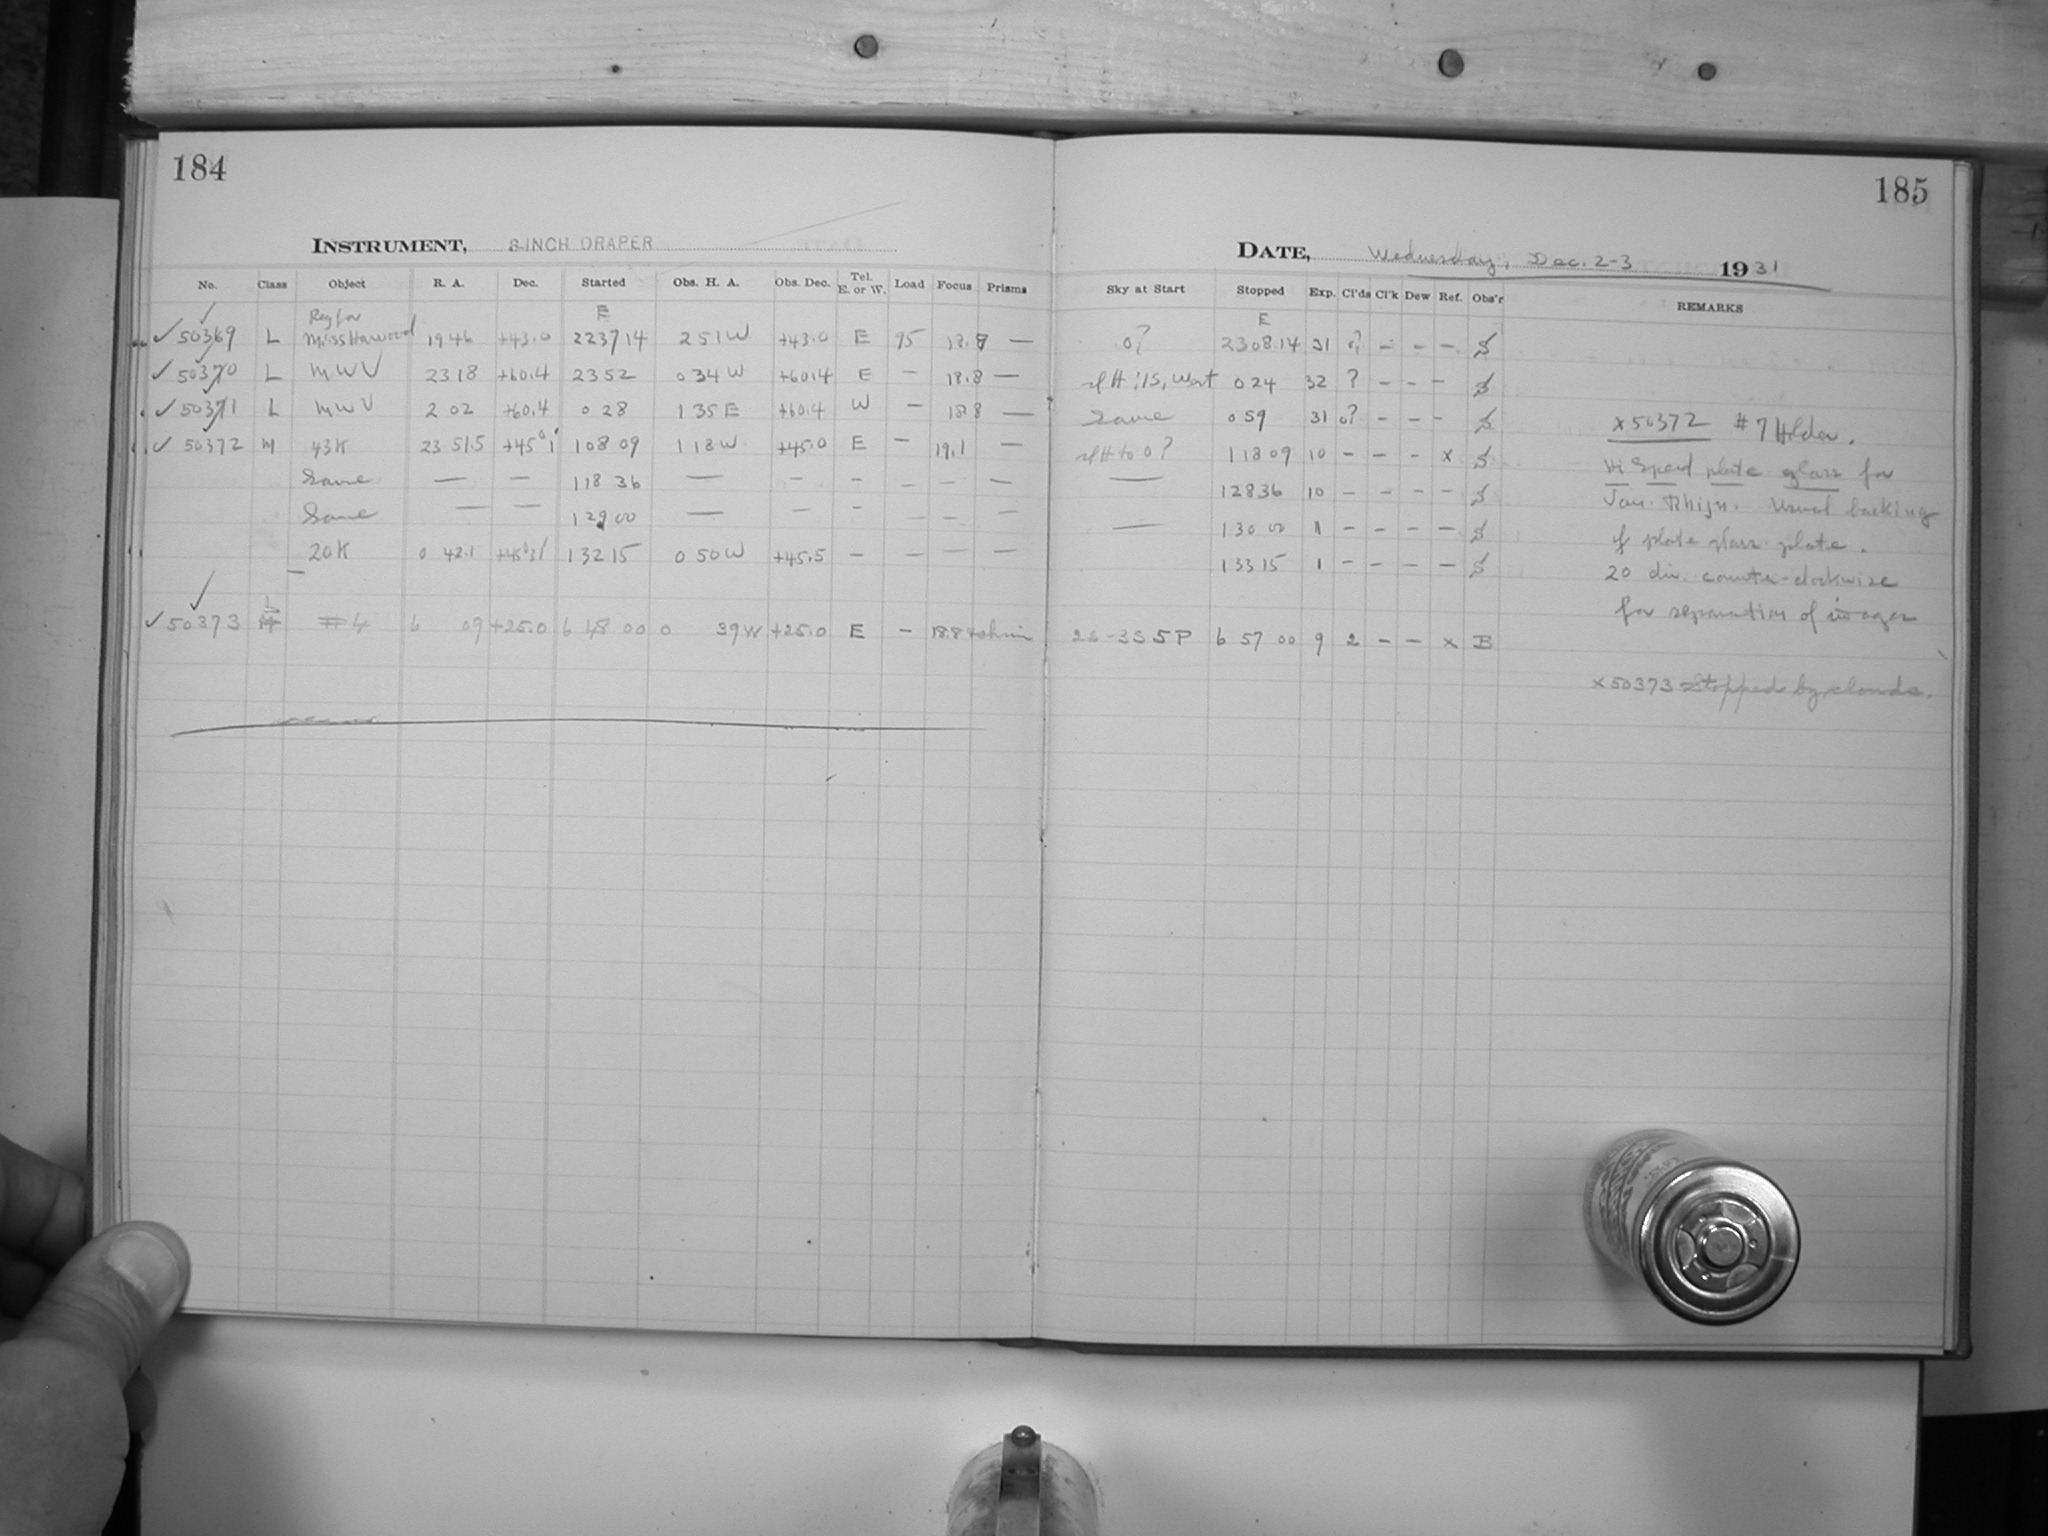 184
INSTRUMENT, 8-INCH DRAPER
No. Class Object R. A. Dec. Started Obs. H. A. Obs. Dec. Tel. E. or W. Load Focus Prisms
Reg for E
✓ 50369 L Miss Harwood 19 46 +43.0 22 37 14 2 51 W +43.0 E 95 18.8 —
✓ 50370 L MWV 23 18 +60.4 23 52 0 34 W +60.4 E — 18.8 —
✓ 50371 L MWV 2 02 +60.4 0 28 1 35 E +60.4 W — 18.8 —
✓ 50372 M 43K 23 51.5 +45°1' 1 08 09 1 18 W +45.0 E — 19.1 —
Same — — 1 18 36 — — — — — —
Same — — 1 29 00 — — — — — —
20K 0 42.1 +45°31' 1 32 15 0 50 W +45.5 — — — —
✓ 50373 L #4 6 09 +25.0 6 48 00 0 39 W +25.0 E — 18.8
185
DATE, Wednesday, Dec. 2-3 1931
Sky at Start Stopped Exp. Cl'ds Cl'k Dew Ref. Obs'r REMARKS
E
0? 23 08 14 31 0? — — — S
West 0 24 32 ? — — — S
Same 0 59 31 0? — — — S
to 0? 1 18 09 10 — — — x S
— 1 28 36 10 — — — — S
— 1 30 00 1 — — — — S
1 33 15 1 — — — — S
2S-3S 5P 6 57 00 9 2 — — x B
x 50372 #7 Holder.
Hi Speed plate glass for
Van Rhijn. Usual backing
of plate glass plate.
20 div. counter-clockwise
for separation of images
x 50373 Stopped by clouds.